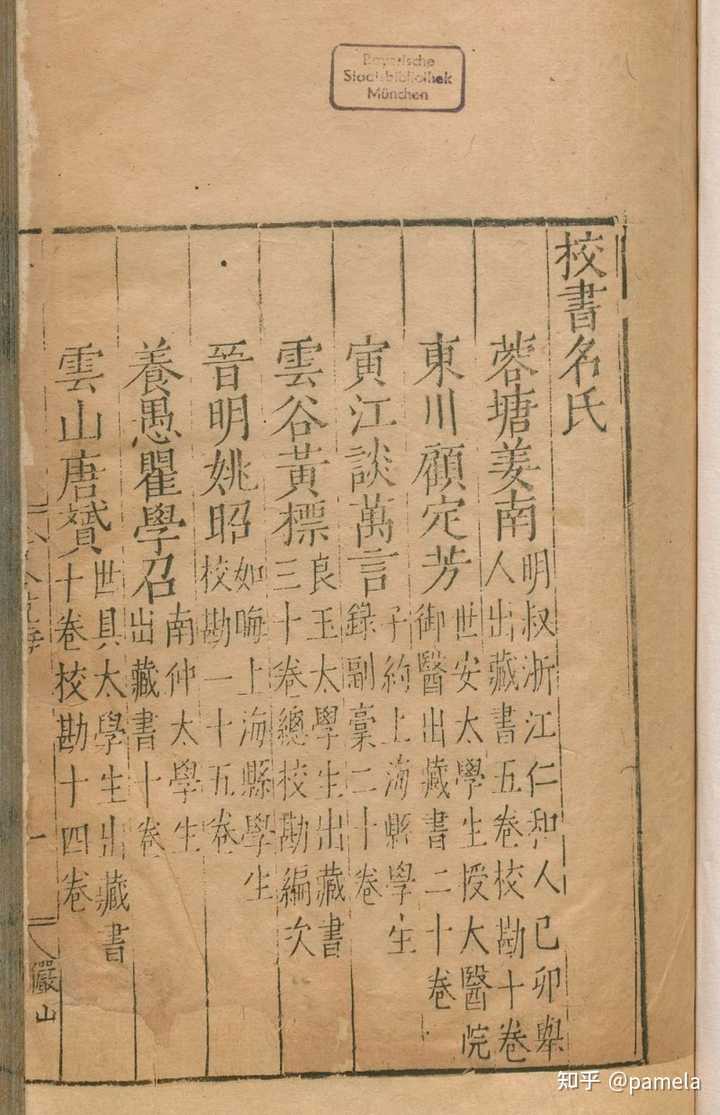 Bayerische
Staatsbibliothek
München
校書名氏
蓉塘姜南明叔浙江仁和人己卯舉
人出藏書五卷校勘十卷
東川顧定芳世安太學生授太醫院
御醫出藏書二十卷
寅江談萬言子約上海縣學生
錄副稾二十卷
雲谷黃標良玉太學生出藏書
三十卷總校勘編次
晉明姚昭如晦上海縣學生
校勘一十五卷
養愚瞿學召南仲太學生
出藏書十卷
雲山唐贇世具太學生出藏書
十卷校勘十四卷
儼山
知乎 @pamela